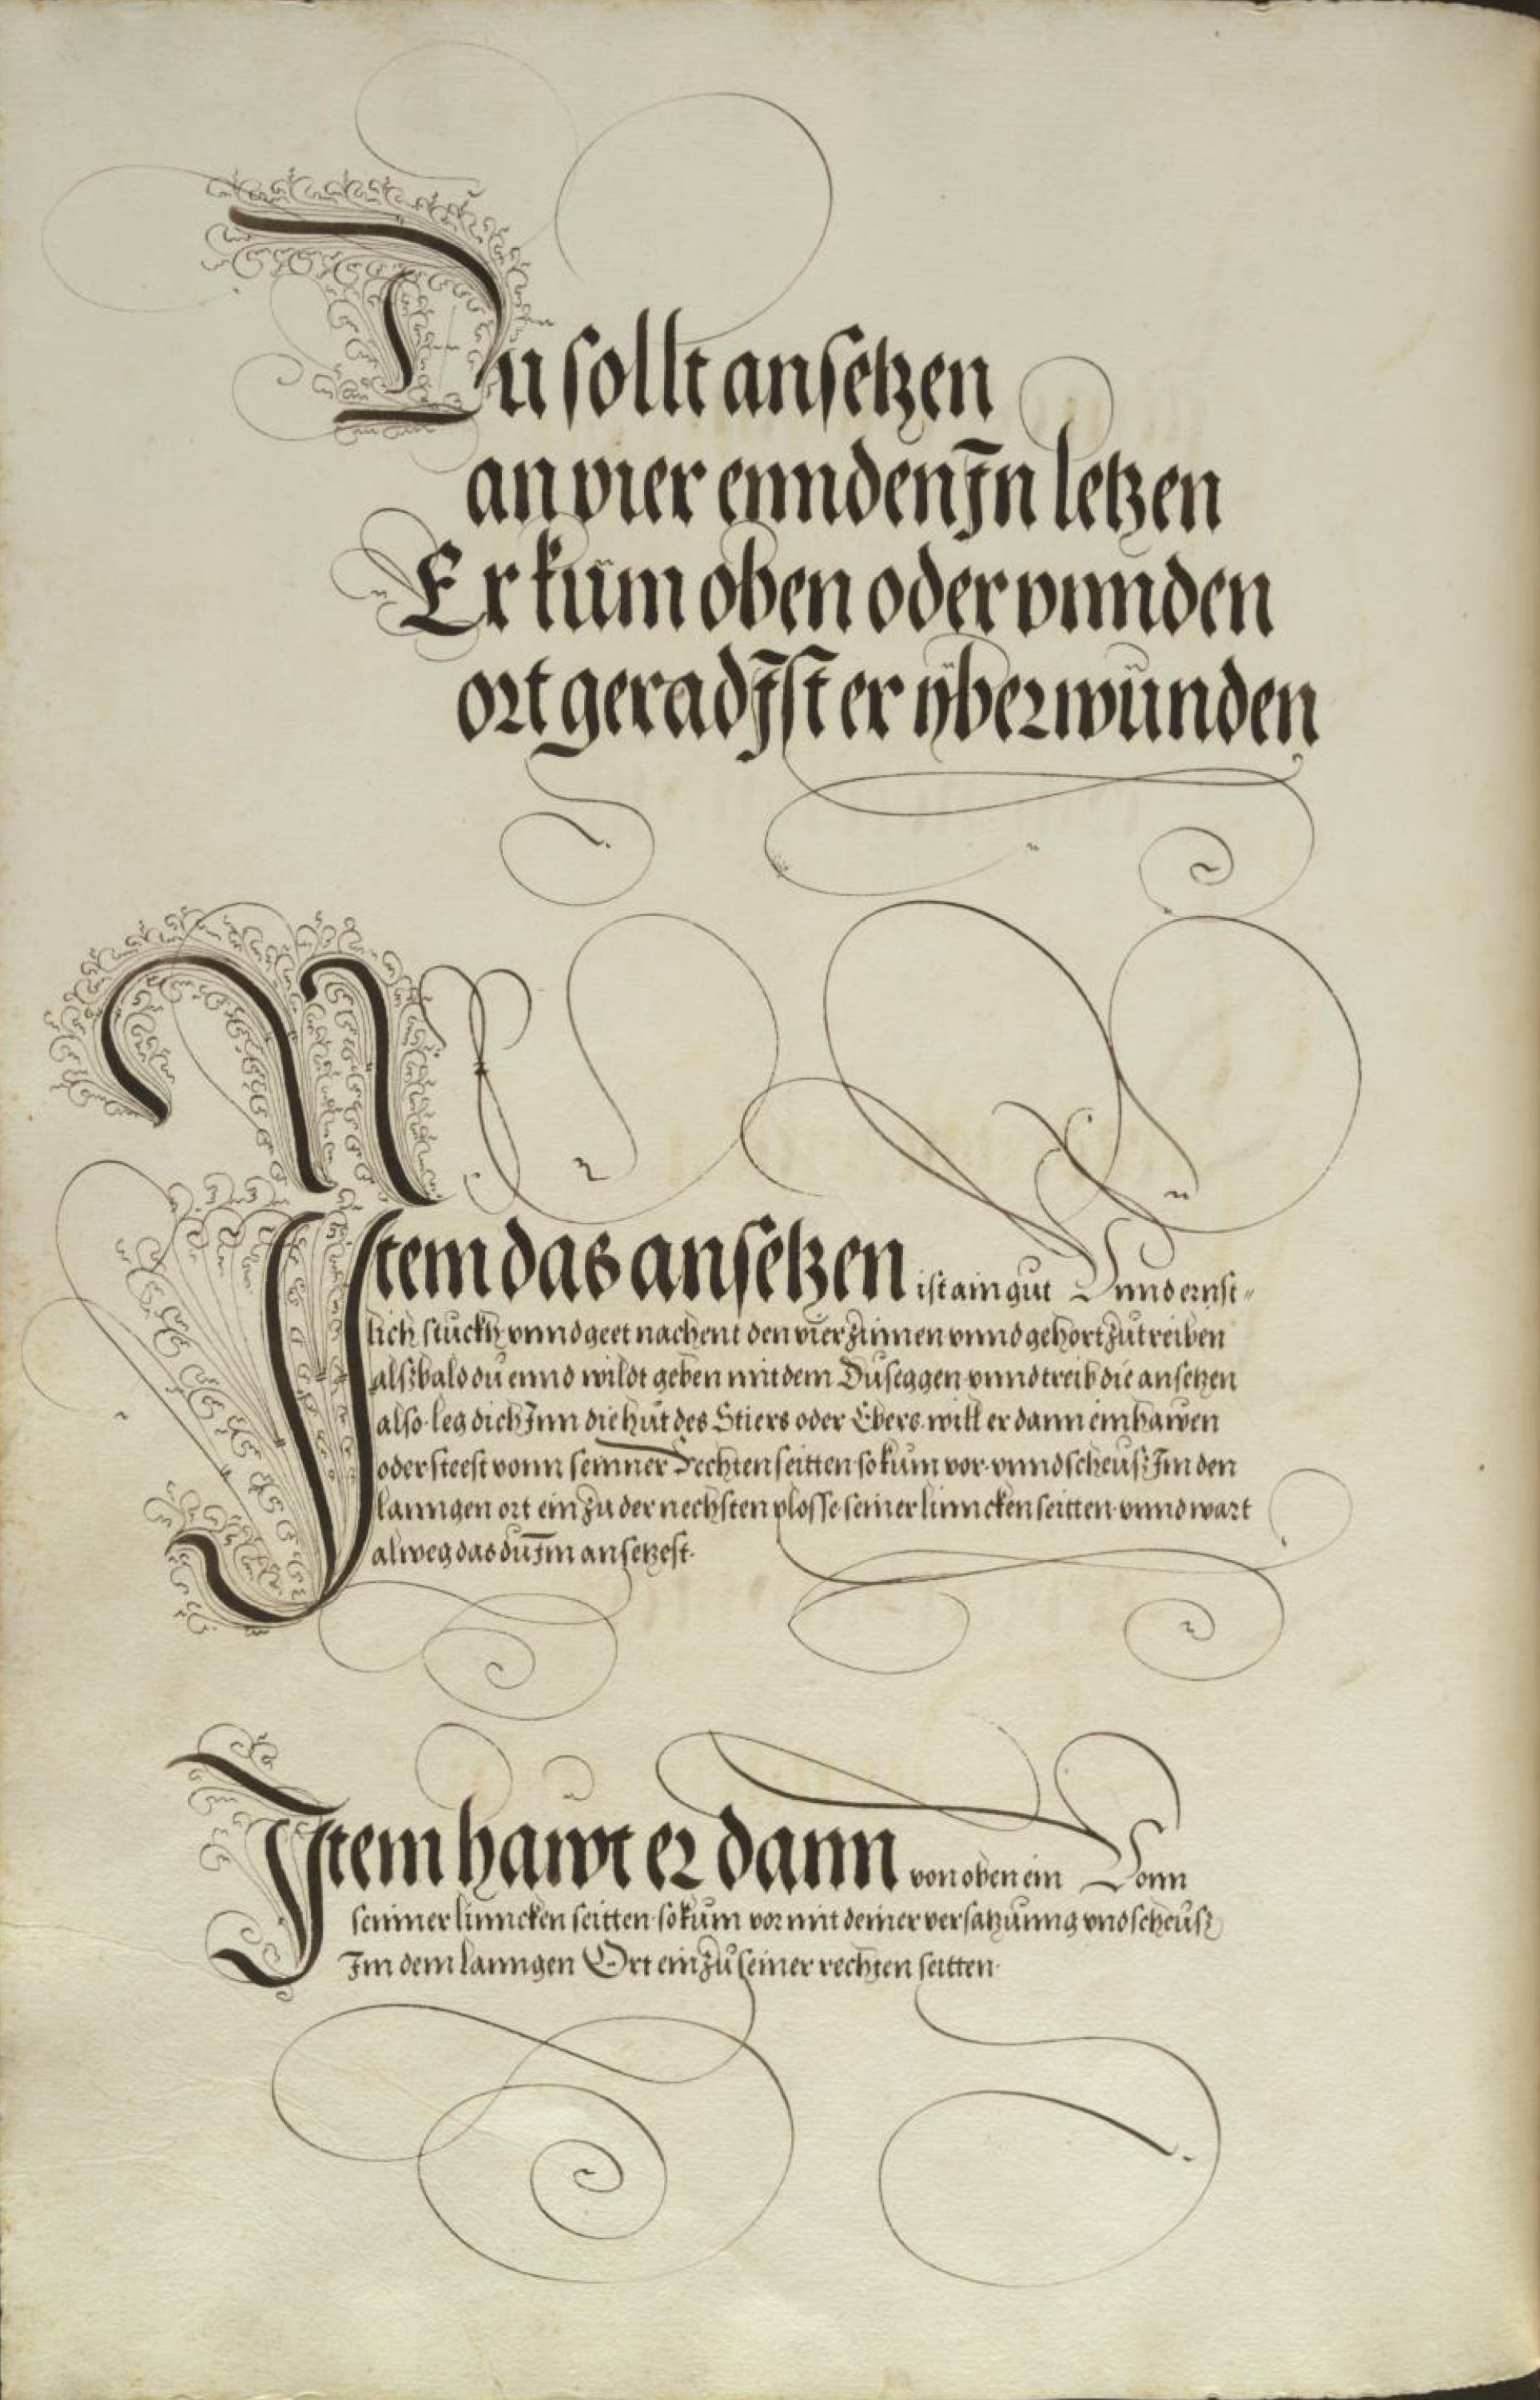 Du sollt ansetzen
an vier ennden Jn letzen
Er kům oben oder vnnden
ort gerad Jst er ÿberwunden
Jtem das ansetzen ist ain gut Vnnd ernst-
lich stuckh vnnd geet nachent den vier zinnen vnnd gehort zůtreiben
alßbald du ennd wildt geben mit dem Duseggen vnnd treib die ansetzen
also · leg dich Jnn die hůt des Stiers oder Ebers · will er dann einhawen
oder steest vonn seinner Rechten seitten · so kum vor · vnnd scheuß Im den
lanngen ort ein zu der nechsten plosse seiner linncken seitten · vnnd wart
alweg das du Im ansetzest ·
Jtem hawt er dann von oben ein Vonn
seinner linncken seitten · so kům vor mit deiner versatzunng vnd scheůß
Im dem lanngen Ort ein zů seiner rechten seitten ·